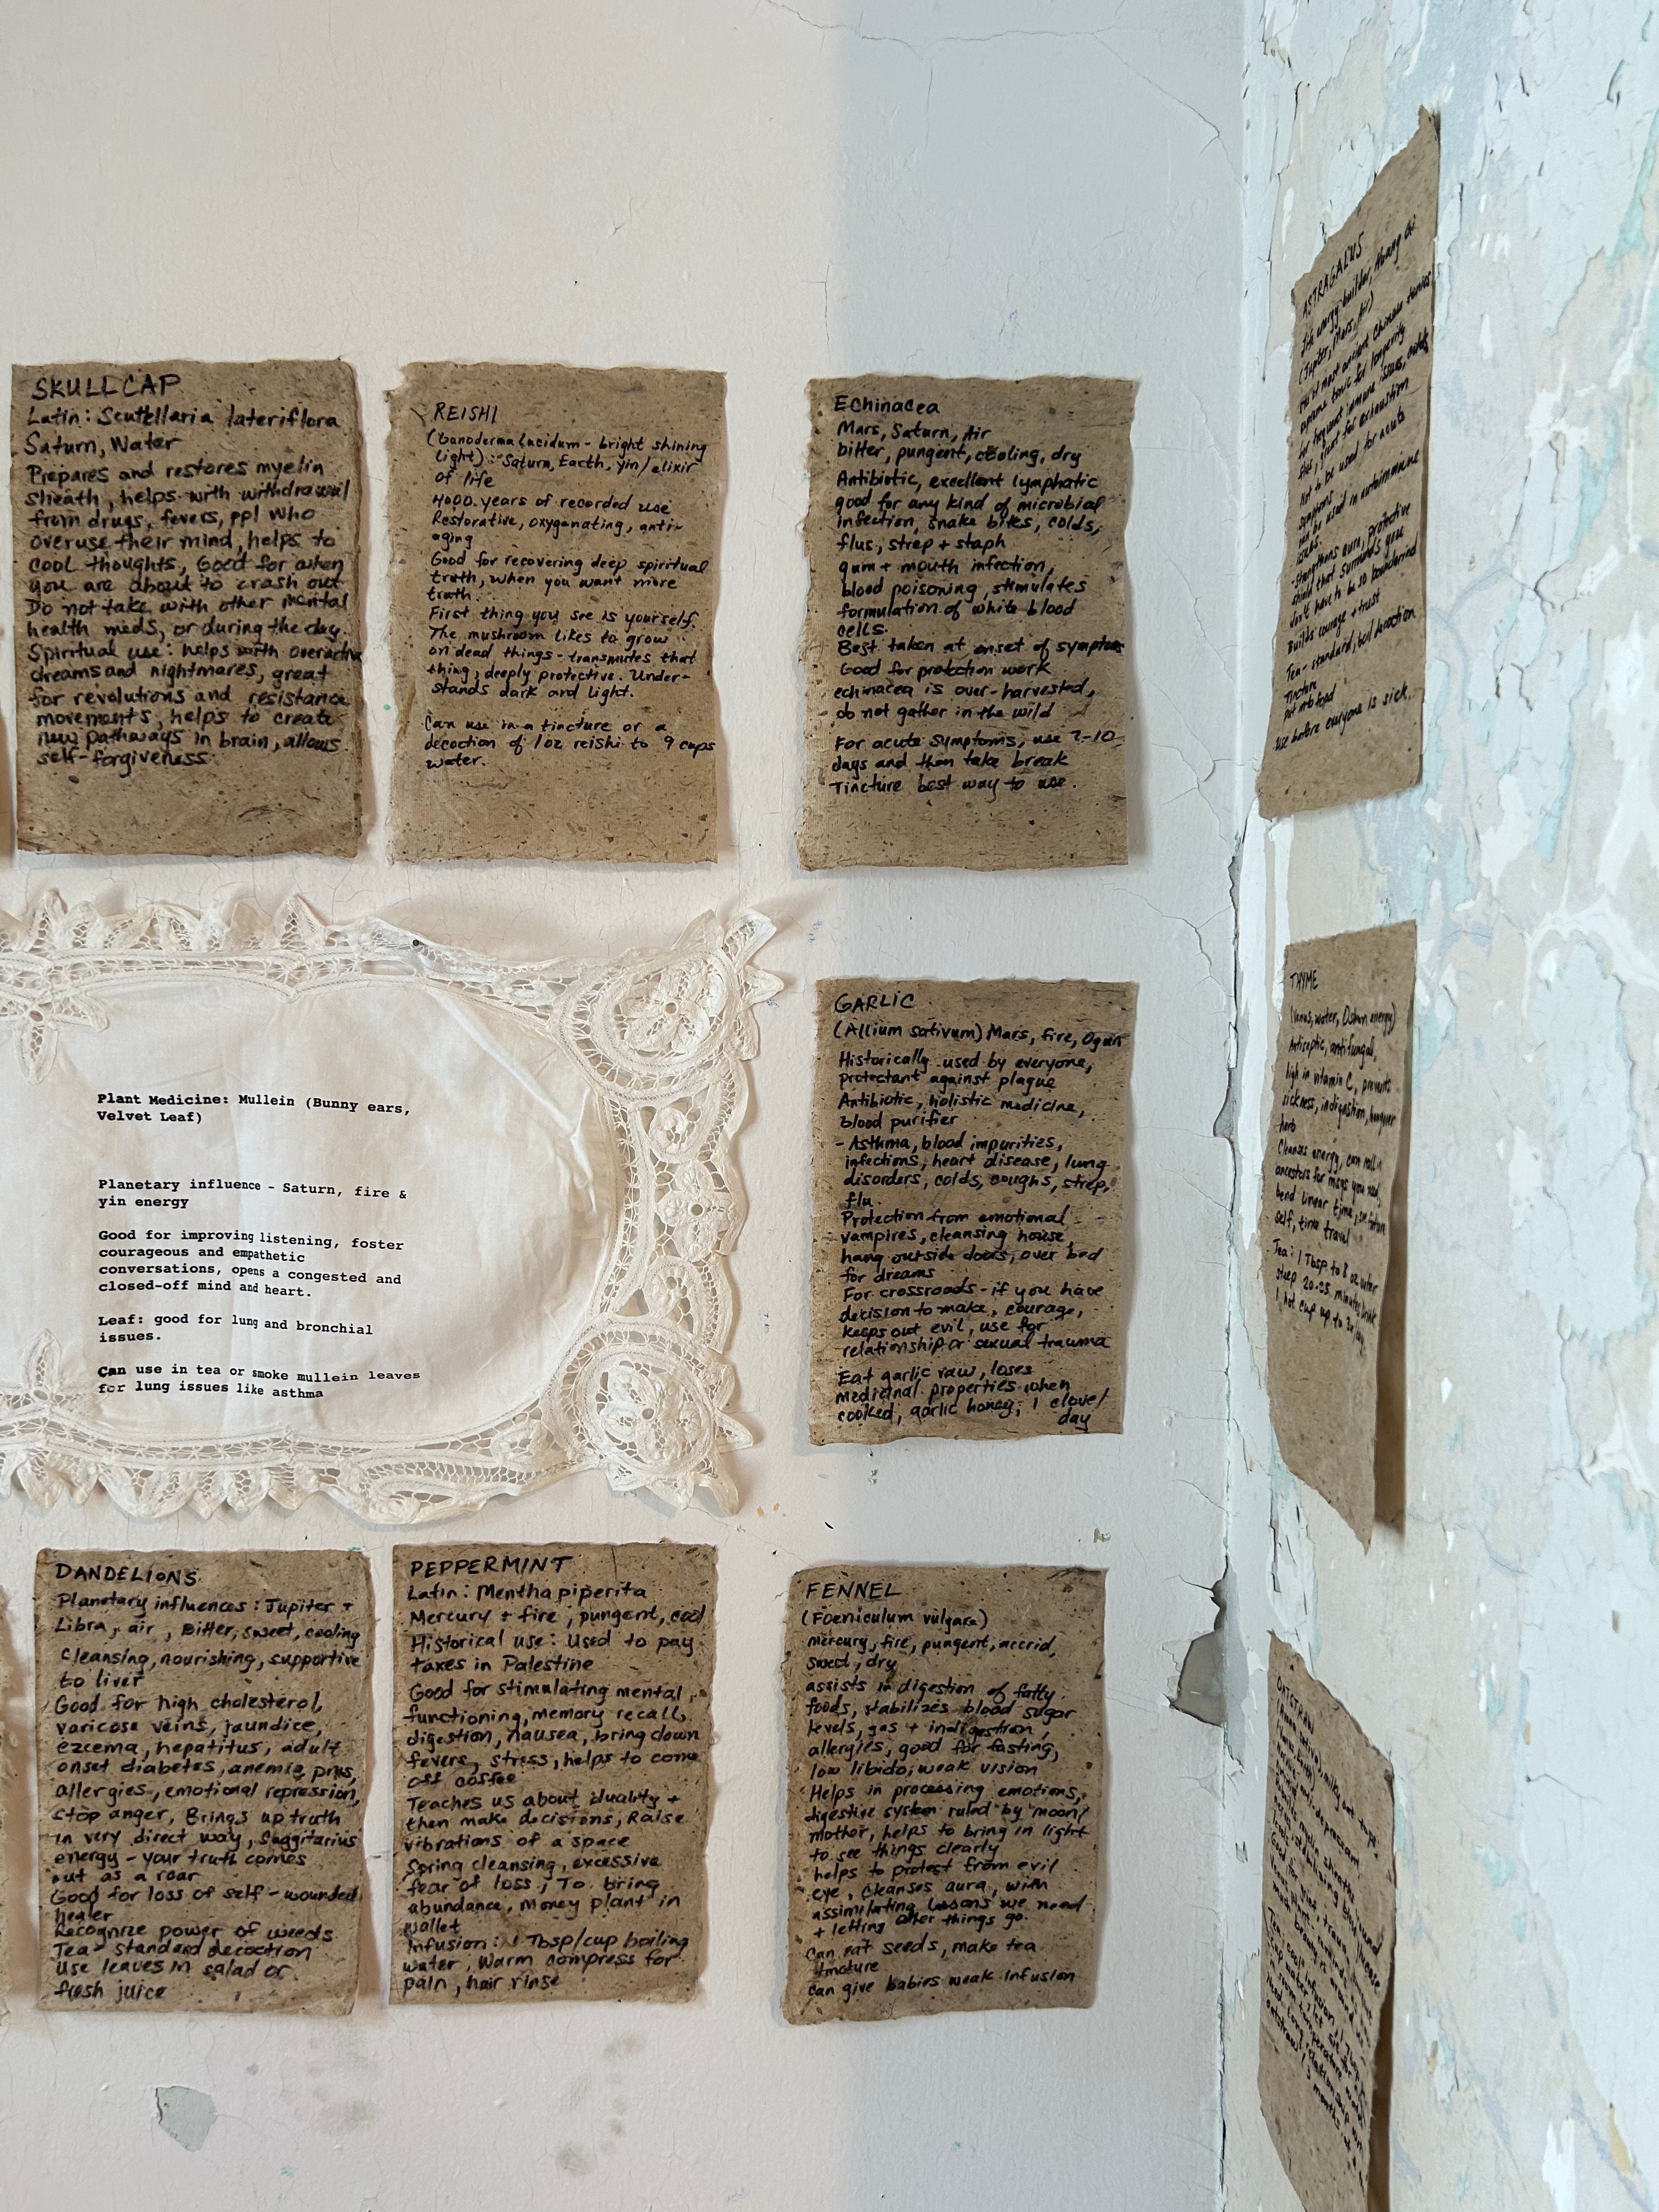 SKULLCAP
Latin: Scutellaria lateriflora
Saturn, Water
Prepares and restores myelin
sheath, helps with withdrawal
from drugs, fevers, ppl who
overuse their mind, helps to
cool thoughts, Good for when
you are about to crash out
Do not take with other mental
health meds, or during the day.
Spiritual use: helps with overactive
dreams and nightmares, great
for revolutions and resistance
movements, helps to create
new pathways in brain, allows
self-forgiveness.
REISHI
(Ganoderma lucidum - bright shining
light): Saturn, Earth, yin/elixir
of life
4000 years of recorded use
Restorative, oxygenating, anti-
aging
Good for recovering deep spiritual
truth, when you want more
truth.
First thing you see is yourself.
The mushroom likes to grow
on dead things - transmutes that
thing, deeply protective. Under-
stands dark and light.
Can use in a tincture or a
decoction of 1 oz reishi to 9 cups
water.
Echinacea
Mars, Saturn, Air
bitter, pungent, cooling, dry
Antibiotic, excellent lymphatic
good for any kind of microbial
infection, snake bites, colds,
flus, strep + staph
gum + mouth infection,
blood poisoning, stimulates
formulation of white blood
cells.
Best taken at onset of symptoms
Good for protection work
echinacea is over-harvested,
do not gather in the wild
For acute symptoms, use 7-10
days and then take break
Tincture best way to use.
ASTRAGALUS
life energy builder, Huang Qi
(Jupiter, Mars, Air)
most ancient Chinese tonics
supreme tonic for longevity
for frequent immune issues,
great for exhaustion
Not to be used for acute
symptoms
can be used in autoimmune
issues.
- Strengthens aura, protective
shield that surrounds you
don't have to be so boundaried
Builds courage + trust
Tea - standard, boil decoction
Tincture
put into food
Use before everyone is sick.
Plant Medicine: Mullein (Bunny ears,
Velvet Leaf)
Planetary influence - Saturn, fire &
yin energy
Good for improving listening, foster
courageous and empathetic
conversations, opens a congested and
closed-off mind and heart.
Leaf: good for lung and bronchial
issues.
Can use in tea or smoke mullein leaves
for lung issues like asthma
GARLIC
(Allium sativum) Mars, fire, Ogun
Historically used by everyone,
protectant against plague
Antibiotic, holistic medicine,
blood purifier
- Asthma, blood impurities,
infections, heart disease, lung
disorders, colds, coughs, strep,
flu.
Protection from emotional
vampires, cleansing house,
hang outside doors, over bed
for dreams
For crossroads - if you have
decision to make, courage,
keeps out evil, use for
relationship or sexual trauma
Eat garlic raw, loses
medicinal properties when
cooked, garlic honey, 1 clove/
day
THYME
(Venus, water, Oshun energy)
Antiseptic, antifungal,
high in vitamin C, prevents
sickness, indigestion, hangover
herb
Cleanses energy, can call in
ancestors for msgs you need,
bend linear time, future
self, time travel
Tea: 1 Tbsp to 8 oz water
steep 20-25 minutes
1 hot cup up to 3x/day
DANDELIONS
Planetary influences: Jupiter +
Libra, air, Bitter, sweet, cooling
Cleansing, nourishing, supportive
to liver
Good for high cholesterol,
varicose veins, jaundice,
ezcema, hepatitus, adult
onset diabetes, anemia, pms,
allergies, emotional repression,
stop anger, Brings up truth
in very direct way, Saggitarius
energy - your truth comes
out as a roar
Good for loss of self - wounded
healer
Recognize power of weeds
Tea - standard decoction
use leaves in salad or
fresh juice
PEPPERMINT
Latin: Mentha piperita
Mercury + fire, pungent, cool
Historical use: Used to pay
taxes in Palestine
Good for stimulating mental
functioning, memory recall,
digestion, nausea, bring down
fevers, stress, helps to come
off coffee
Teaches us about duality +
then make decisions, Raise
vibrations of a space
Spring cleansing, excessive
fear of loss, To bring
abundance, money plant in
wallet
Infusion: 1 Tbsp/cup boiling
water, Warm compress for
pain, hair rinse
FENNEL
(Foeniculum vulgare)
mercury, fire, pungent, accrid,
sweet, dry
assists in digestion of fatty
foods, stabilizes blood sugar
levels, gas + indigestion,
allergies, good for fasting,
low libido, weak vision
Helps in processing emotions,
digestive system ruled by moon/
mother, helps to bring in light
to see things clearly
helps to protect from evil
eye, cleanses aura, with
assimilating lessons we need
+ letting other things go.
Can eat seeds, make tea
tincture
can give babies weak infusion
OATSTRAW
milky oat tops